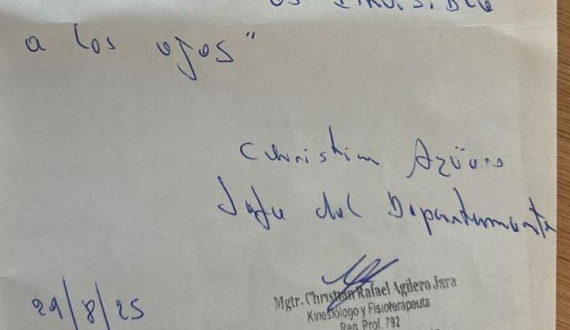 es invisible
a los ojos"
Christian Agüero
Jefe del Departamento
29/8/25
Mgtr. Christian Rafael Agüero Jara
Kinesiólogo y Fisioterapeuta
Reg. Prof. 792